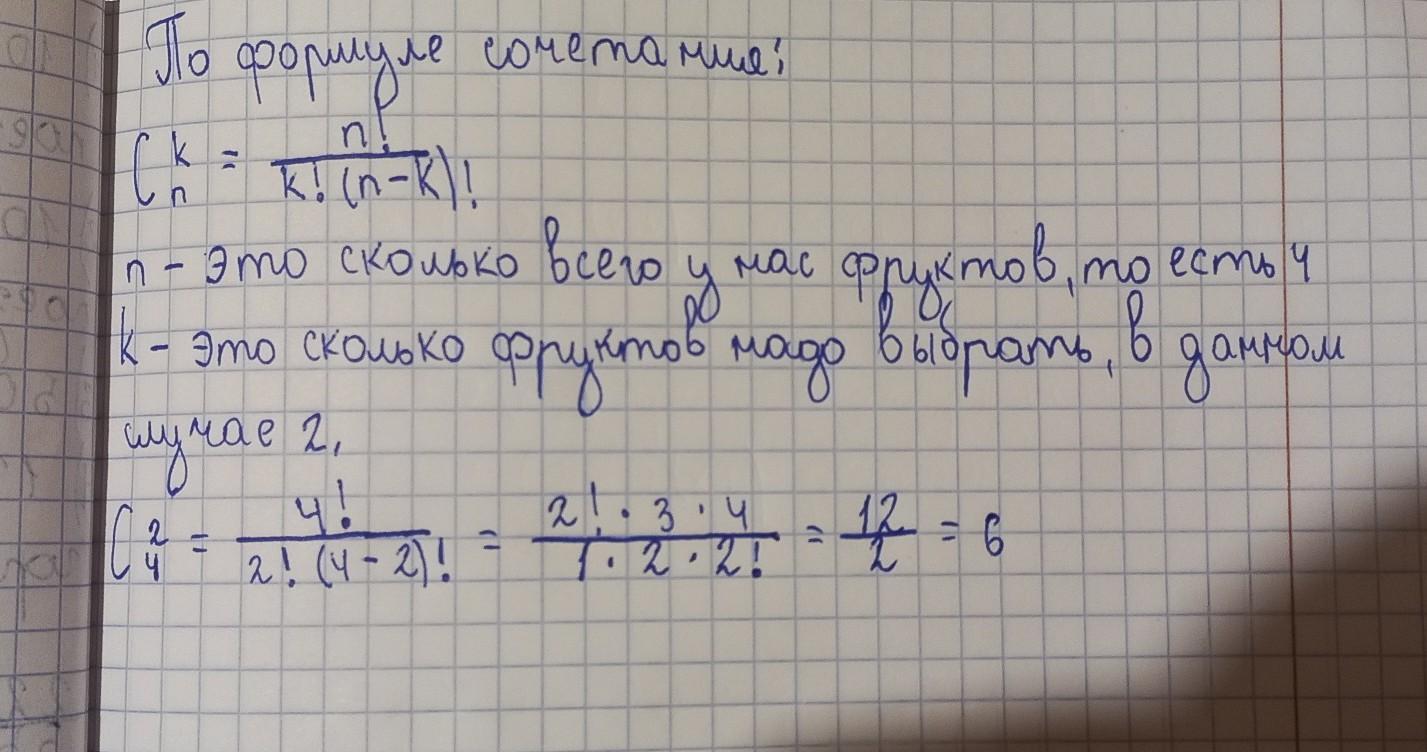 По формуле сочетания:
C_n^k = n! / k! (n-k)!
n - это сколько всего у нас фруктов, то есть 4
k - это сколько фруктов надо выбрать, в данном
случае 2,
C_4^2 = 4! / 2! (4-2)! = 2! · 3 · 4 / 1 · 2 · 2! = 12 / 2 = 6